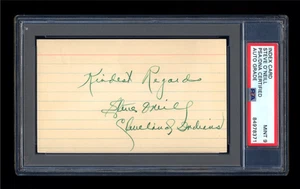 INDEX CARD
STEVE O'NEILL
PSA/DNA CERTIFIED
AUTO GRADE
MINT 9
84978371
Kindest Regards
Steve O'Neill
Cleveland Indians